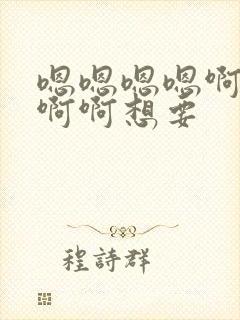 嗯嗯嗯嗯啊
啊啊想要
程詩群